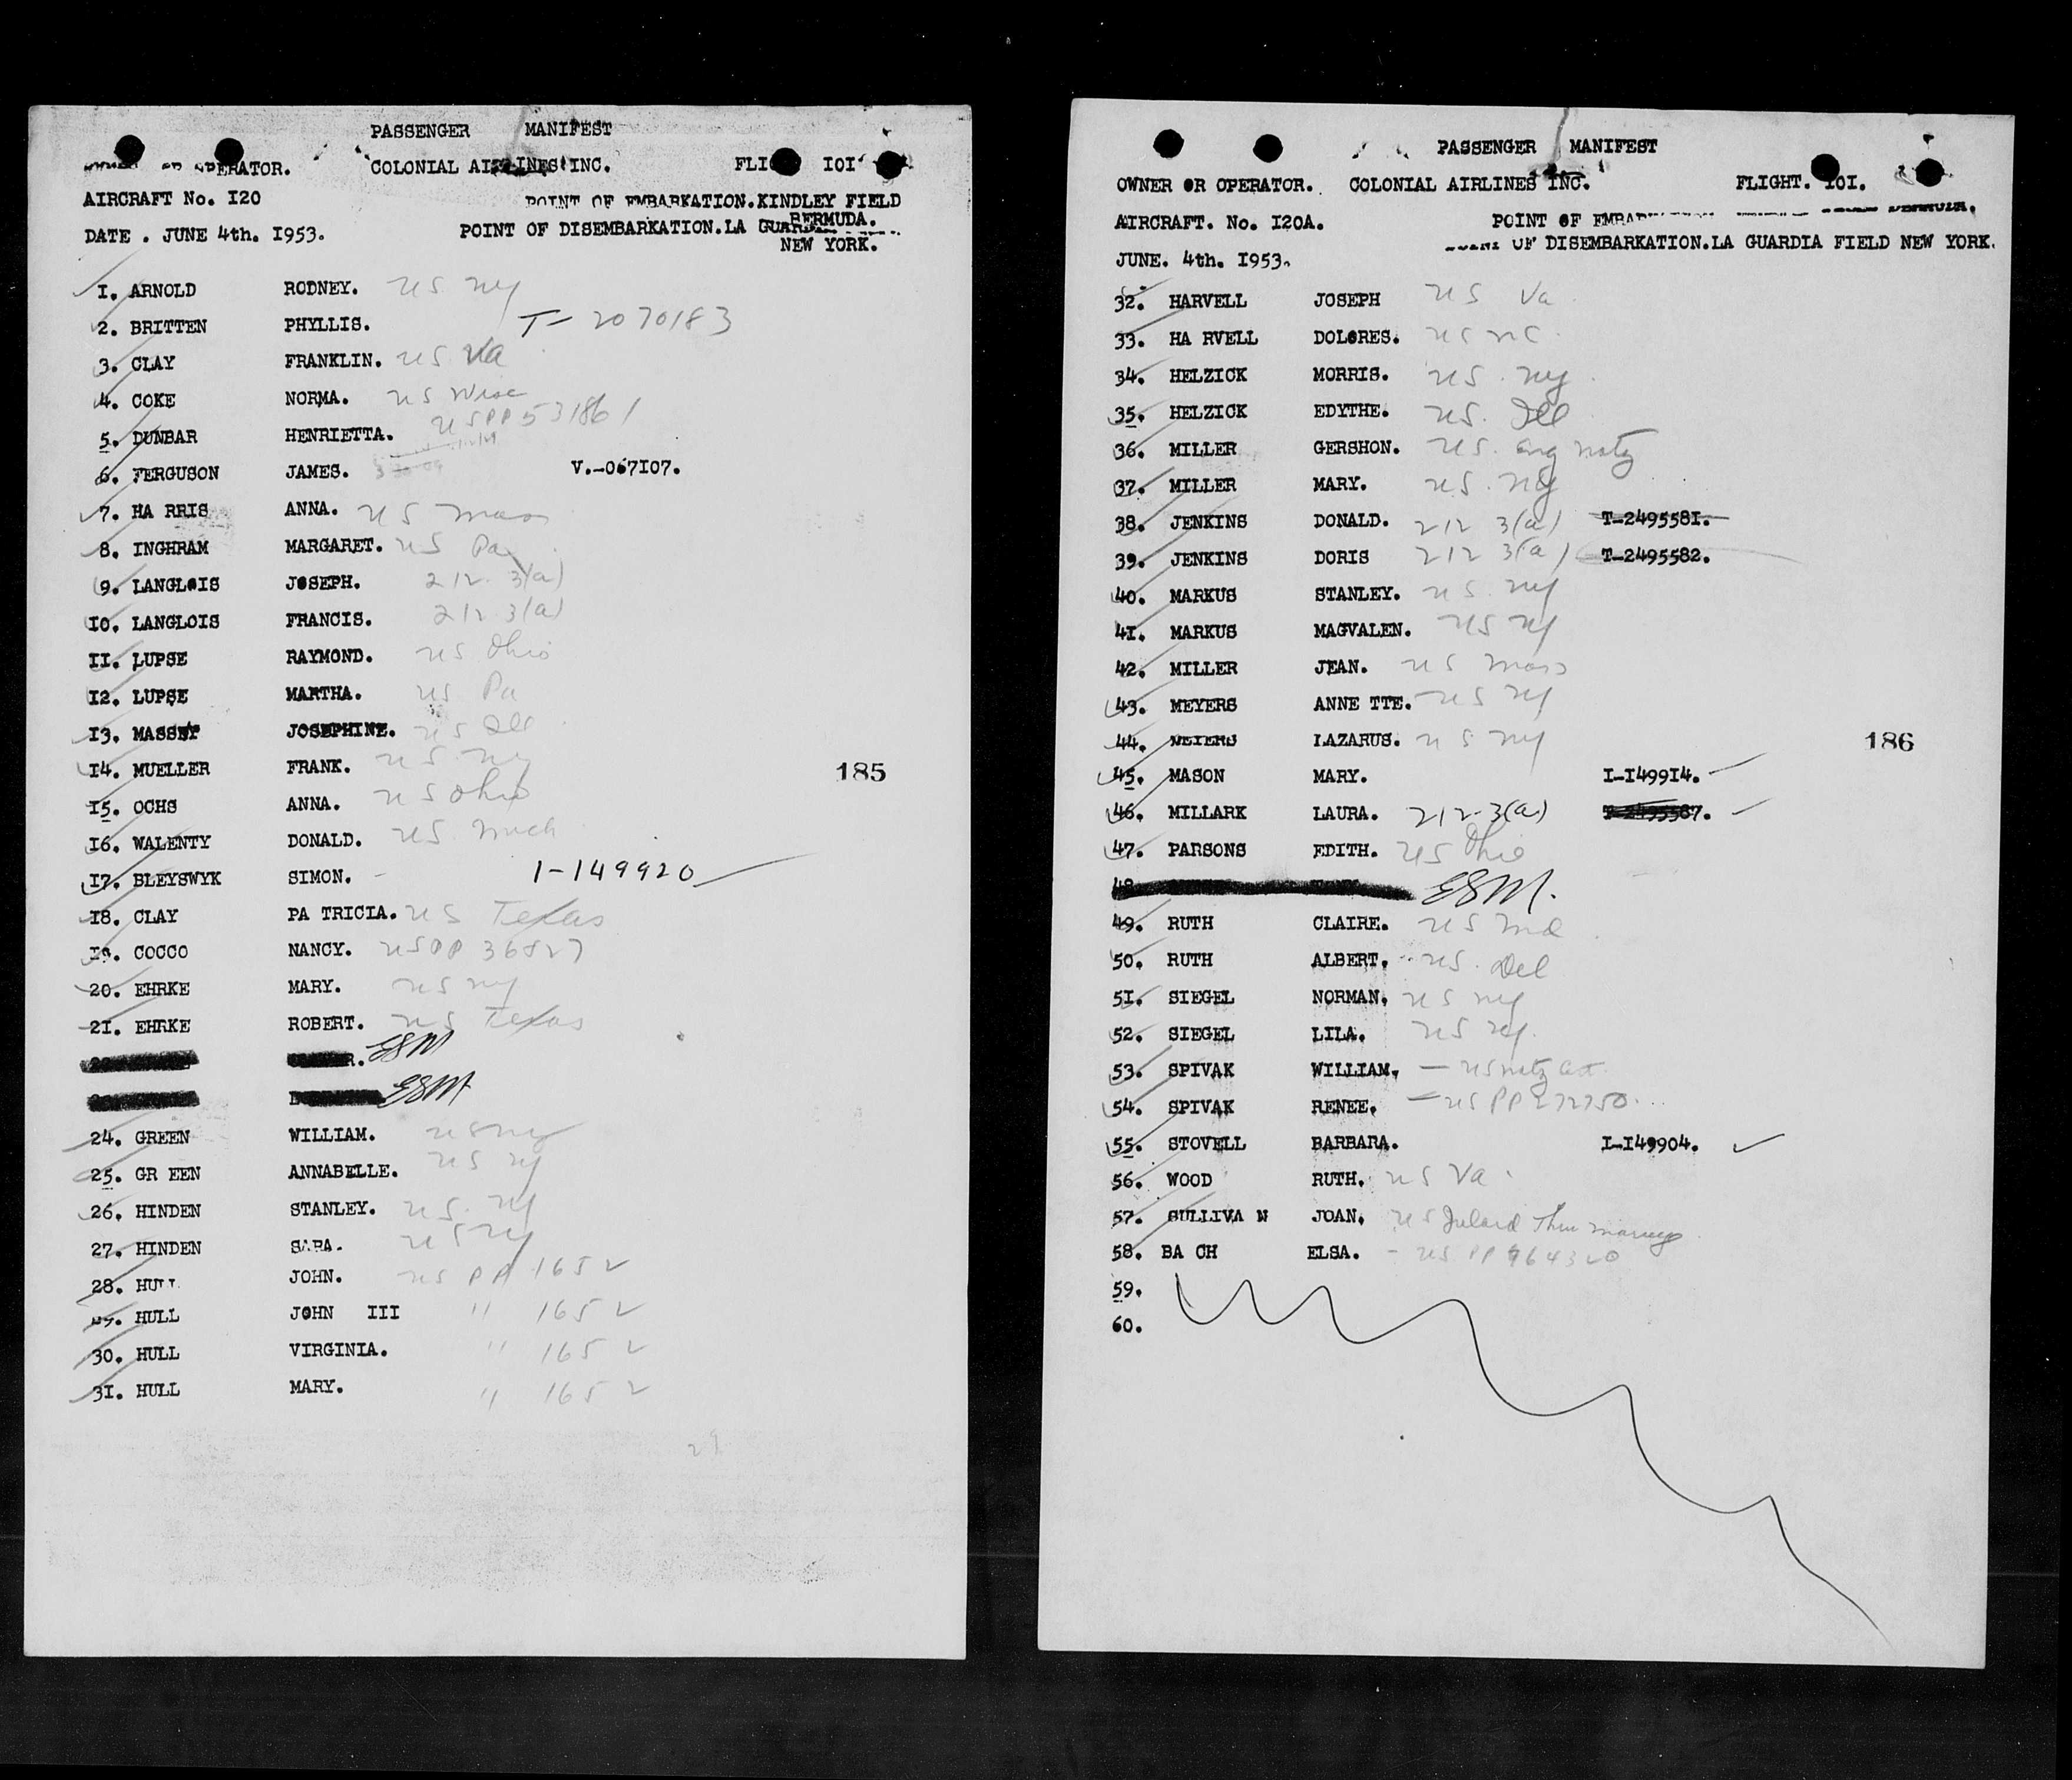 PASSENGER MANIFEST
OPERATOR. COLONIAL AIRLINES INC. FLI IOI
AIRCRAFT No. I20 POINT OF EMBARKATION.KINDLEY FIELD
BERMUDA.
DATE . JUNE 4th. I953. POINT OF DISEMBARKATION.LA
NEW YORK.
I. ARNOLD RODNEY. US NY
2. BRITTEN PHYLLIS. T- 2070183
3. CLAY FRANKLIN. US Va
4. COKE NORMA. US Wisc
5. DUNBAR HENRIETTA. USPP 531861
6. FERGUSON JAMES. V.-067I07.
7. HA RRIS ANNA. US Mass
8. INGHRAM MARGARET. US Pa
9. LANGLOIS JOSEPH. 212. 3(a)
IO. LANGLOIS FRANCIS. 212 3(a)
II. LUPSE RAYMOND. US Ohio
I2. LUPSE MARTHA. US Pa
I3. MASSEY JOSEPHINE. US Ill
I4. MUELLER FRANK. US NY
185
I5. OCHS ANNA. US Ohio
I6. WALENTY DONALD. US Mich
I7. BLEYSWYK SIMON. - 1-149920
I8. CLAY PA TRICIA. US Texas
I9. COCCO NANCY. USPP 36827
20. EHRKE MARY. US NY
2I. EHRKE ROBERT. US Texas
R. ESM
ESM
24. GREEN WILLIAM. US NY
25. GR EEN ANNABELLE. US NY
26. HINDEN STANLEY. US. NY
27. HINDEN SARA. US NY
28. HULL JOHN. US PP 1652
29. HULL JOHN III " 1652
30. HULL VIRGINIA. " 1652
3I. HULL MARY. " 1652
29
PASSENGER MANIFEST
OWNER OR OPERATOR. COLONIAL AIRLINES INC. FLIGHT. IOI.
AIRCRAFT. No. I20A. POINT OF
OF DISEMBARKATION.LA GUARDIA FIELD NEW YORK.
JUNE. 4th. I953.
32. HARVELL JOSEPH US Va
33. HA RVELL DOLORES. US NC
34. HELZICK MORRIS. US. NY
35. HELZICK EDYTHE. US. Ill
36. MILLER GERSHON. US. natz
37. MILLER MARY. US. NY
38. JENKINS DONALD. 212 3(a) T-249558I.
39. JENKINS DORIS 212 3(a) T-2495582.
40. MARKUS STANLEY. US NY
4I. MARKUS MAGVALEN. US NY
42. MILLER JEAN. US Mass
43. MEYERS ANNE TTE. US NY
44. MEYERS LAZARUS. US NY
186
45. MASON MARY. I-I499I4.
46. MILLARK LAURA. 212-3(a) T-2495587.
47. PARSONS EDITH. US Ohio
48. ESM.
49. RUTH CLAIRE. US Md
50. RUTH ALBERT. US. Del
5I. SIEGEL NORMAN. US NY
52. SIEGEL LILA. US NY.
53. SPIVAK WILLIAM. - US natz
54. SPIVAK RENEE. - US PP 272750
55. STOVELL BARBARA. I-I49904.
56. WOOD RUTH. US Va
57. SULLIVA N JOAN. US Thru
58. BA CH ELSA. - US PP 964320
59.
60.